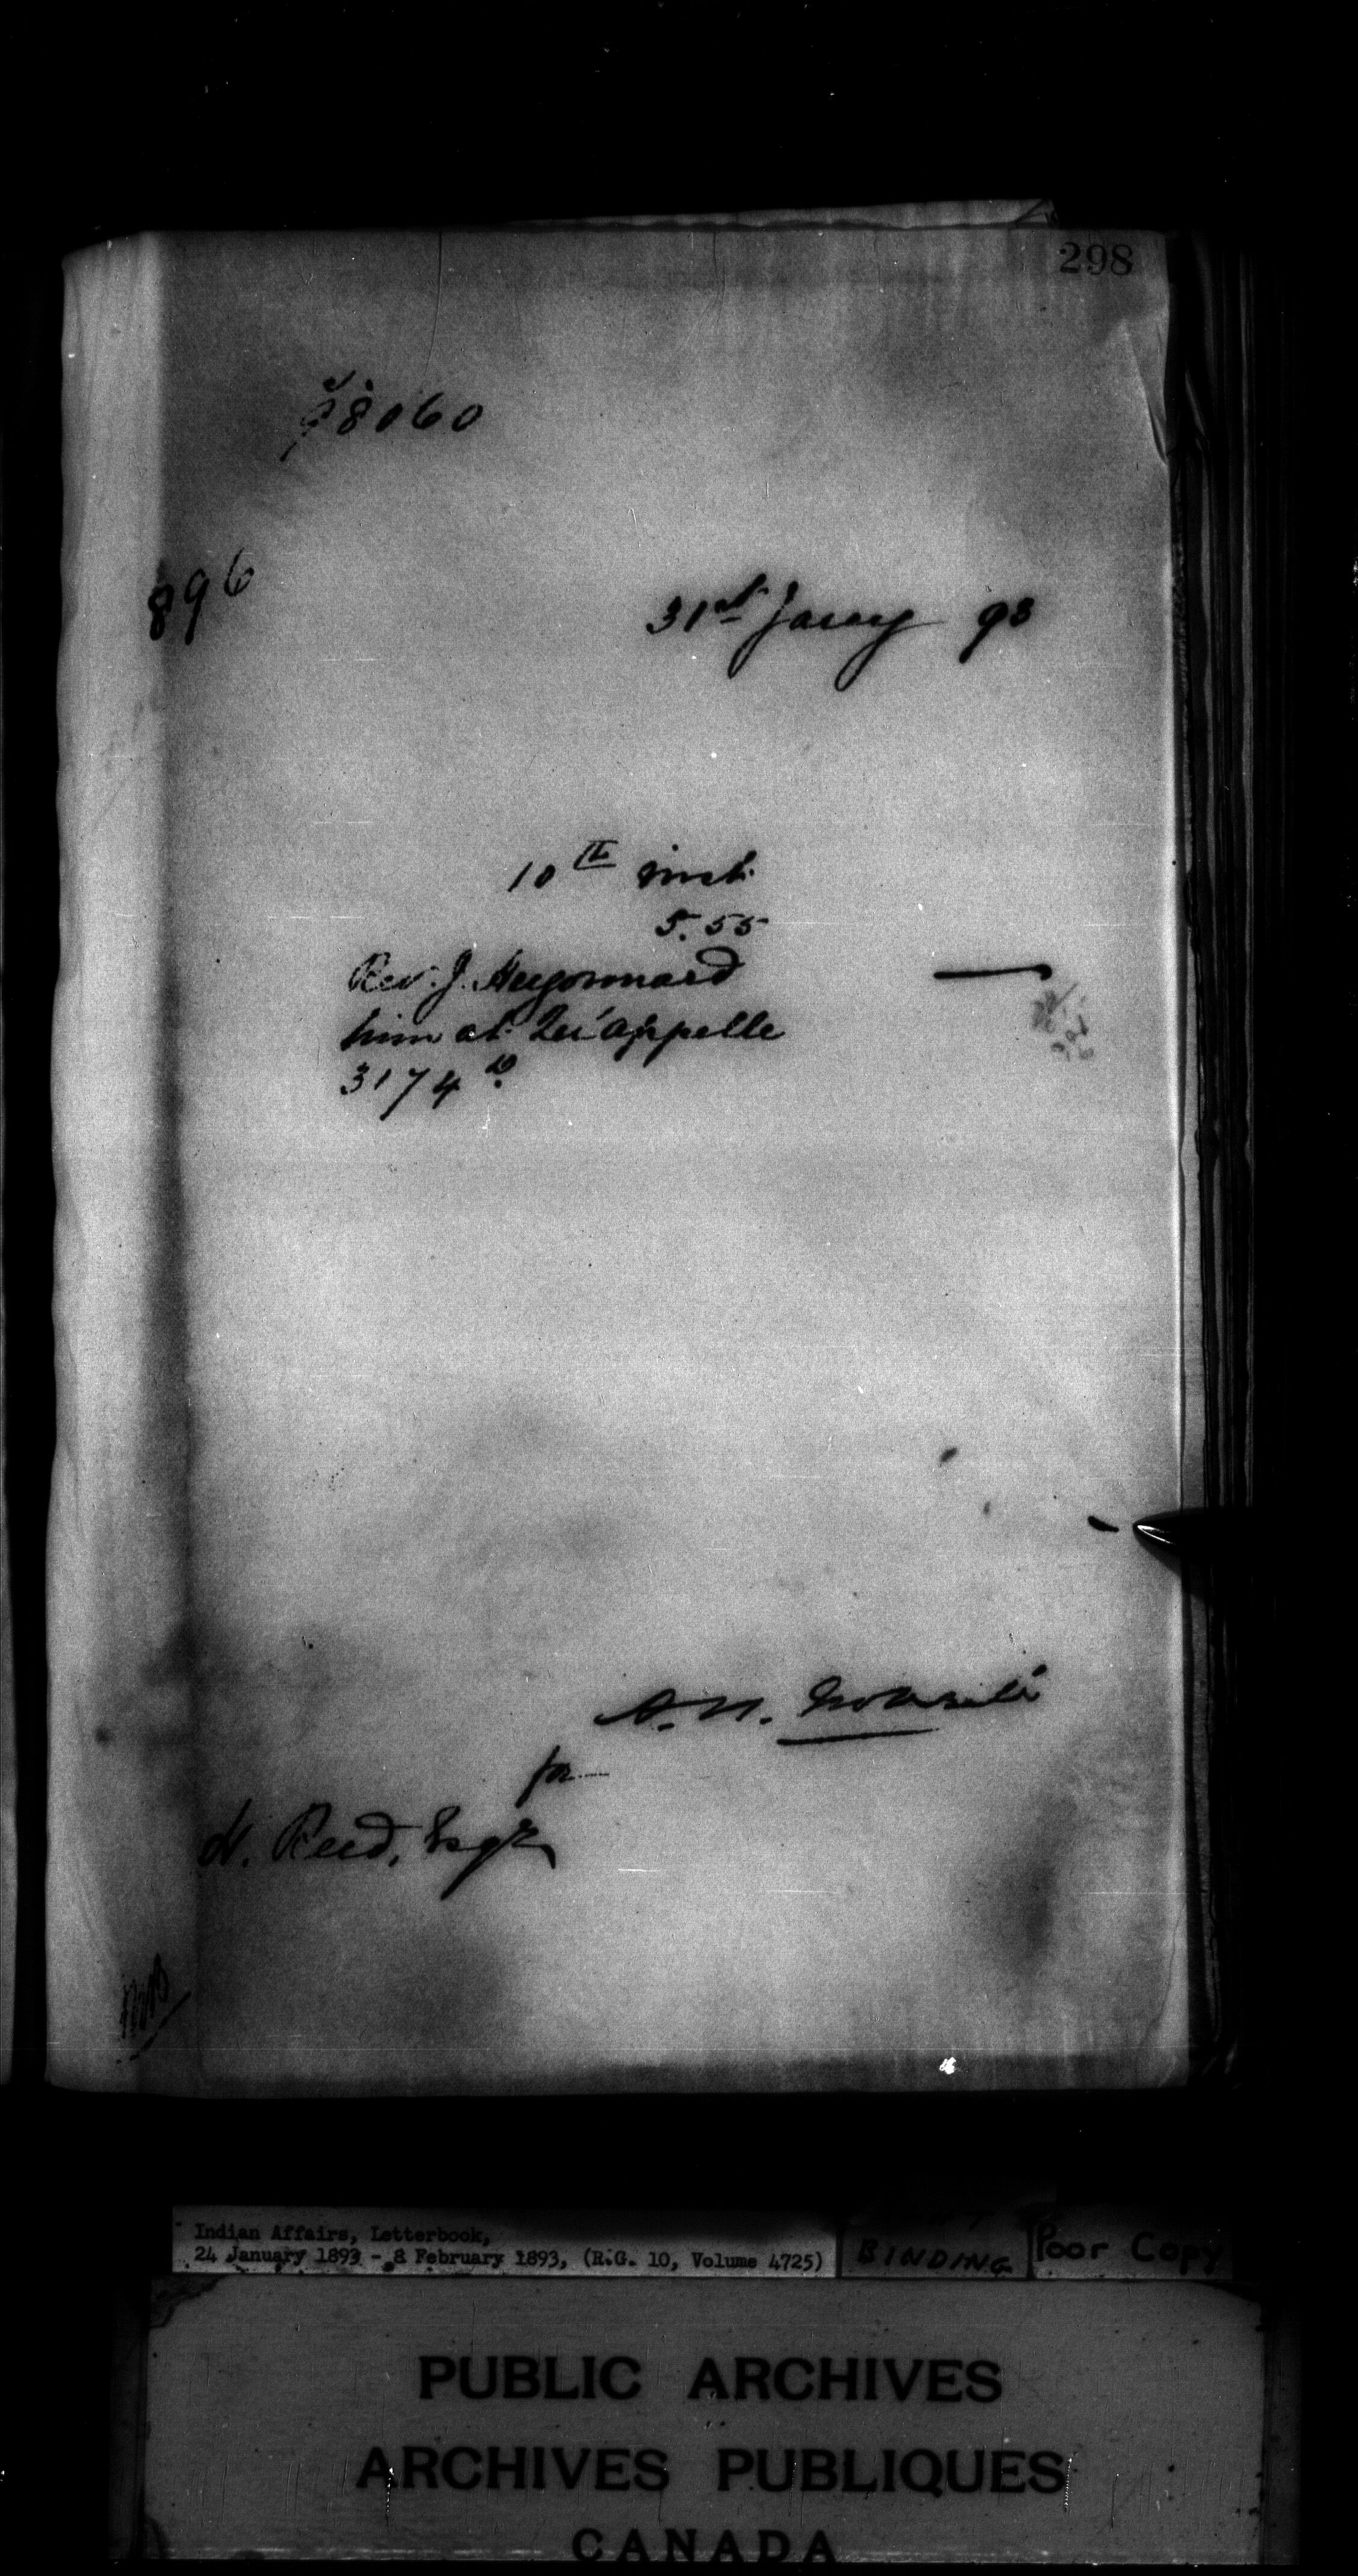 298
98060
896
31st Jany 93
10th inst.
5.55
Rev. J. Hugonnard
him at Qu'Appelle
3174
A. N.
for
H. Reed, Esqr
Indian Affairs, Letterbook,
24 January 1893 - 8 February 1893, (R.G. 10, Volume 4725)
BINDING
Poor Copy
PUBLIC ARCHIVES
ARCHIVES PUBLIQUES
CANADA